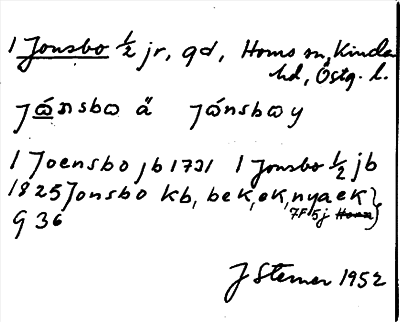 1 Jonsbo ½ jr, gd, Horns sn, Kinda
hd, Östg. l.
jɷ́nsbɷ ä̊ jɷ́nsbɷy
1 Joensbo jb 1731 1 Jonsbo ½ jb
1825 Jonsbo kb, bek, ek, nya ek}
7F5j Horn
G 36
J Sterner 1952